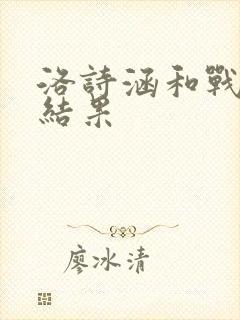 洛詩涵和戰
結果
廖冰清